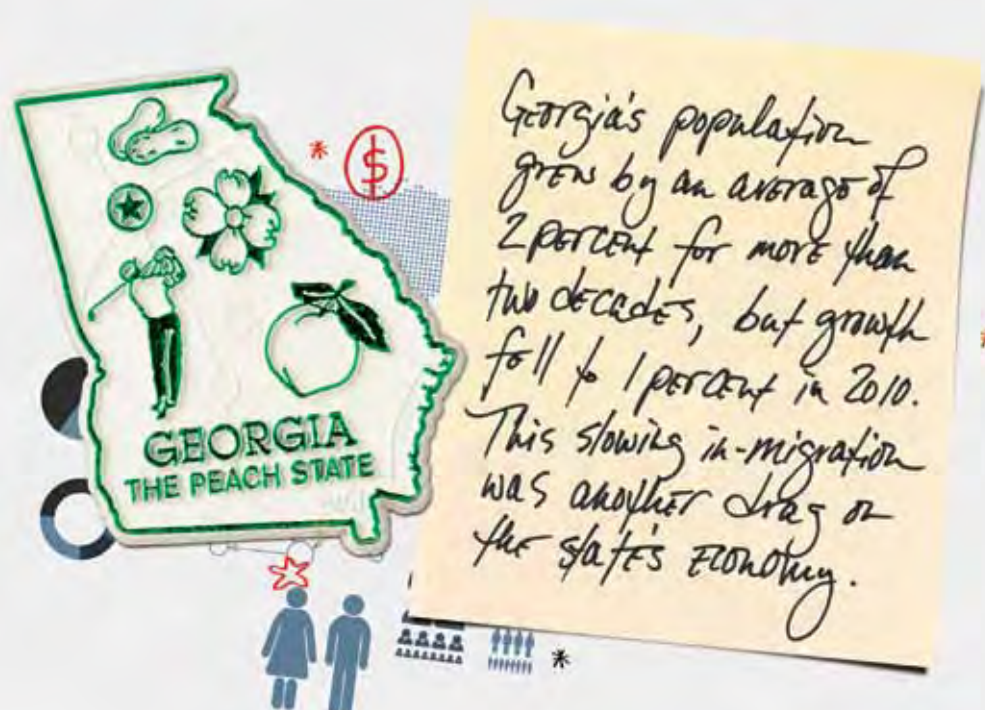 GEORGIA
THE PEACH STATE
$
Georgia's population
grew by an average of
2 percent for more than
two decades, but growth
fell to 1 percent in 2010.
This slowing in-migration
was another drag on
the state's economy.